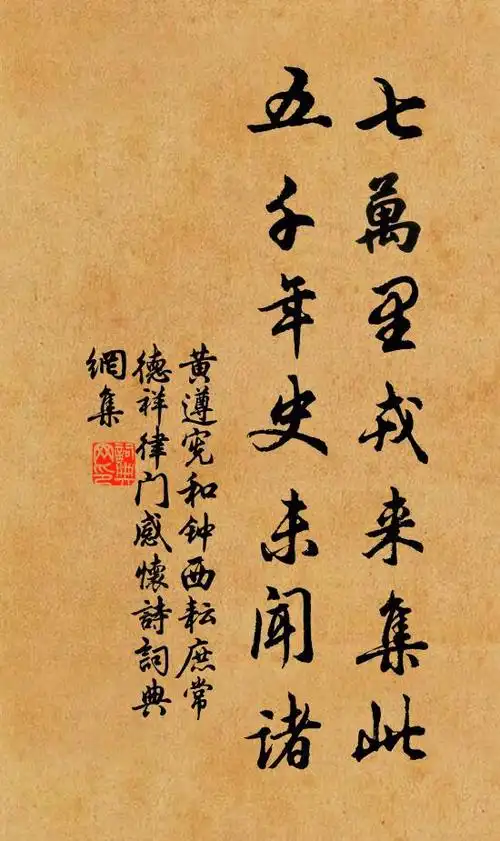 七萬里戎来集此
五千年史未聞諸
黄遵宪和钟西耘庶常
德祥律门感懷詩詞典
網集
詞典網印